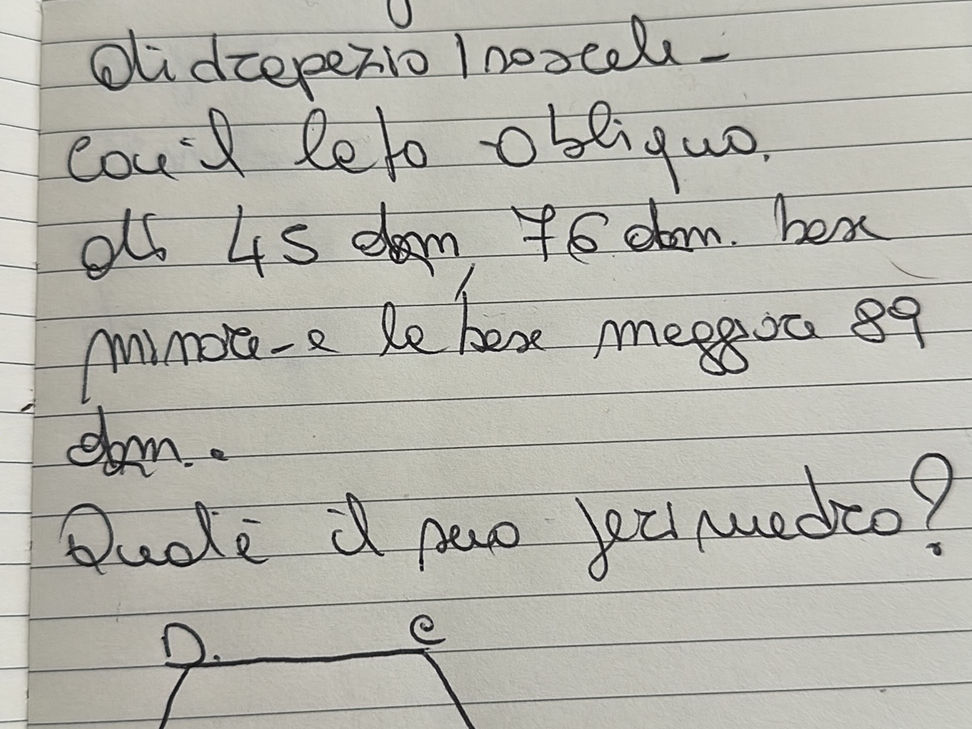 di trapezio Isoscele -
con il lato obliquo.
di 45 dam, 76 dam. base
minore - e la base maggiore 89
dam..
Qual è il suo perimetro?
D. C